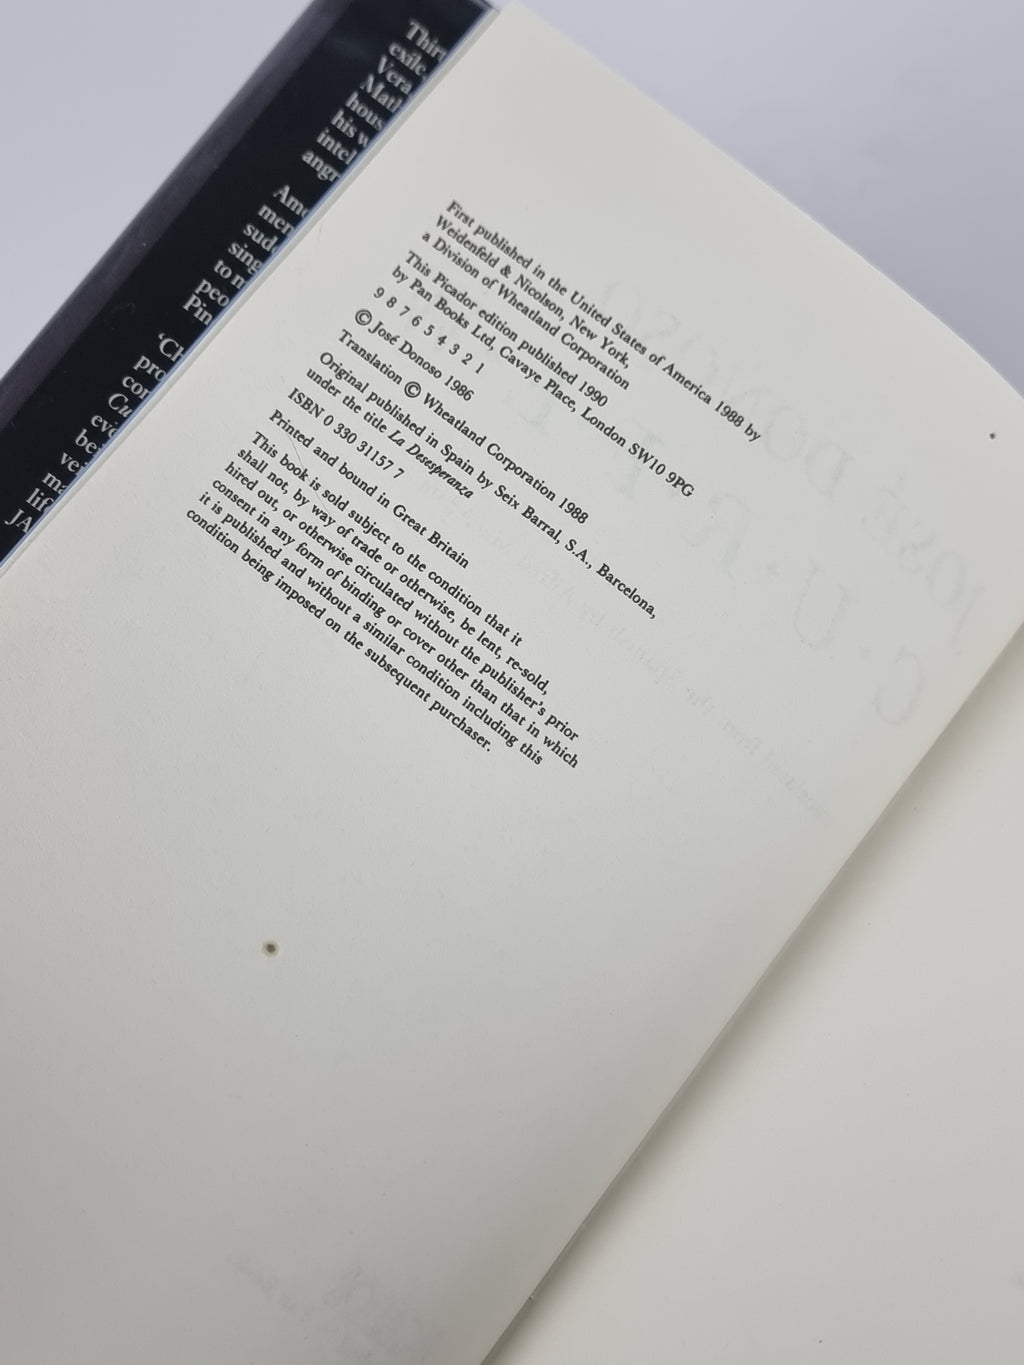 First published in the United States of America 1988 by
Weidenfeld & Nicolson, New York,
a Division of Wheatland Corporation
This Picador edition published 1990
by Pan Books Ltd, Cavaye Place, London SW10 9PG
9 8 7 6 5 4 3 2 1
© José Donoso 1986
Translation © Wheatland Corporation 1988
Original published in Spain by Seix Barral, S.A., Barcelona,
under the title La Desesperanza
ISBN 0 330 31157 7
Printed and bound in Great Britain
This book is sold subject to the condition that it
shall not, by way of trade or otherwise, be lent, re-sold,
hired out, or otherwise circulated without the publisher's prior
consent in any form of binding or cover other than that in which
it is published and without a similar condition including this
condition being imposed on the subsequent purchaser.